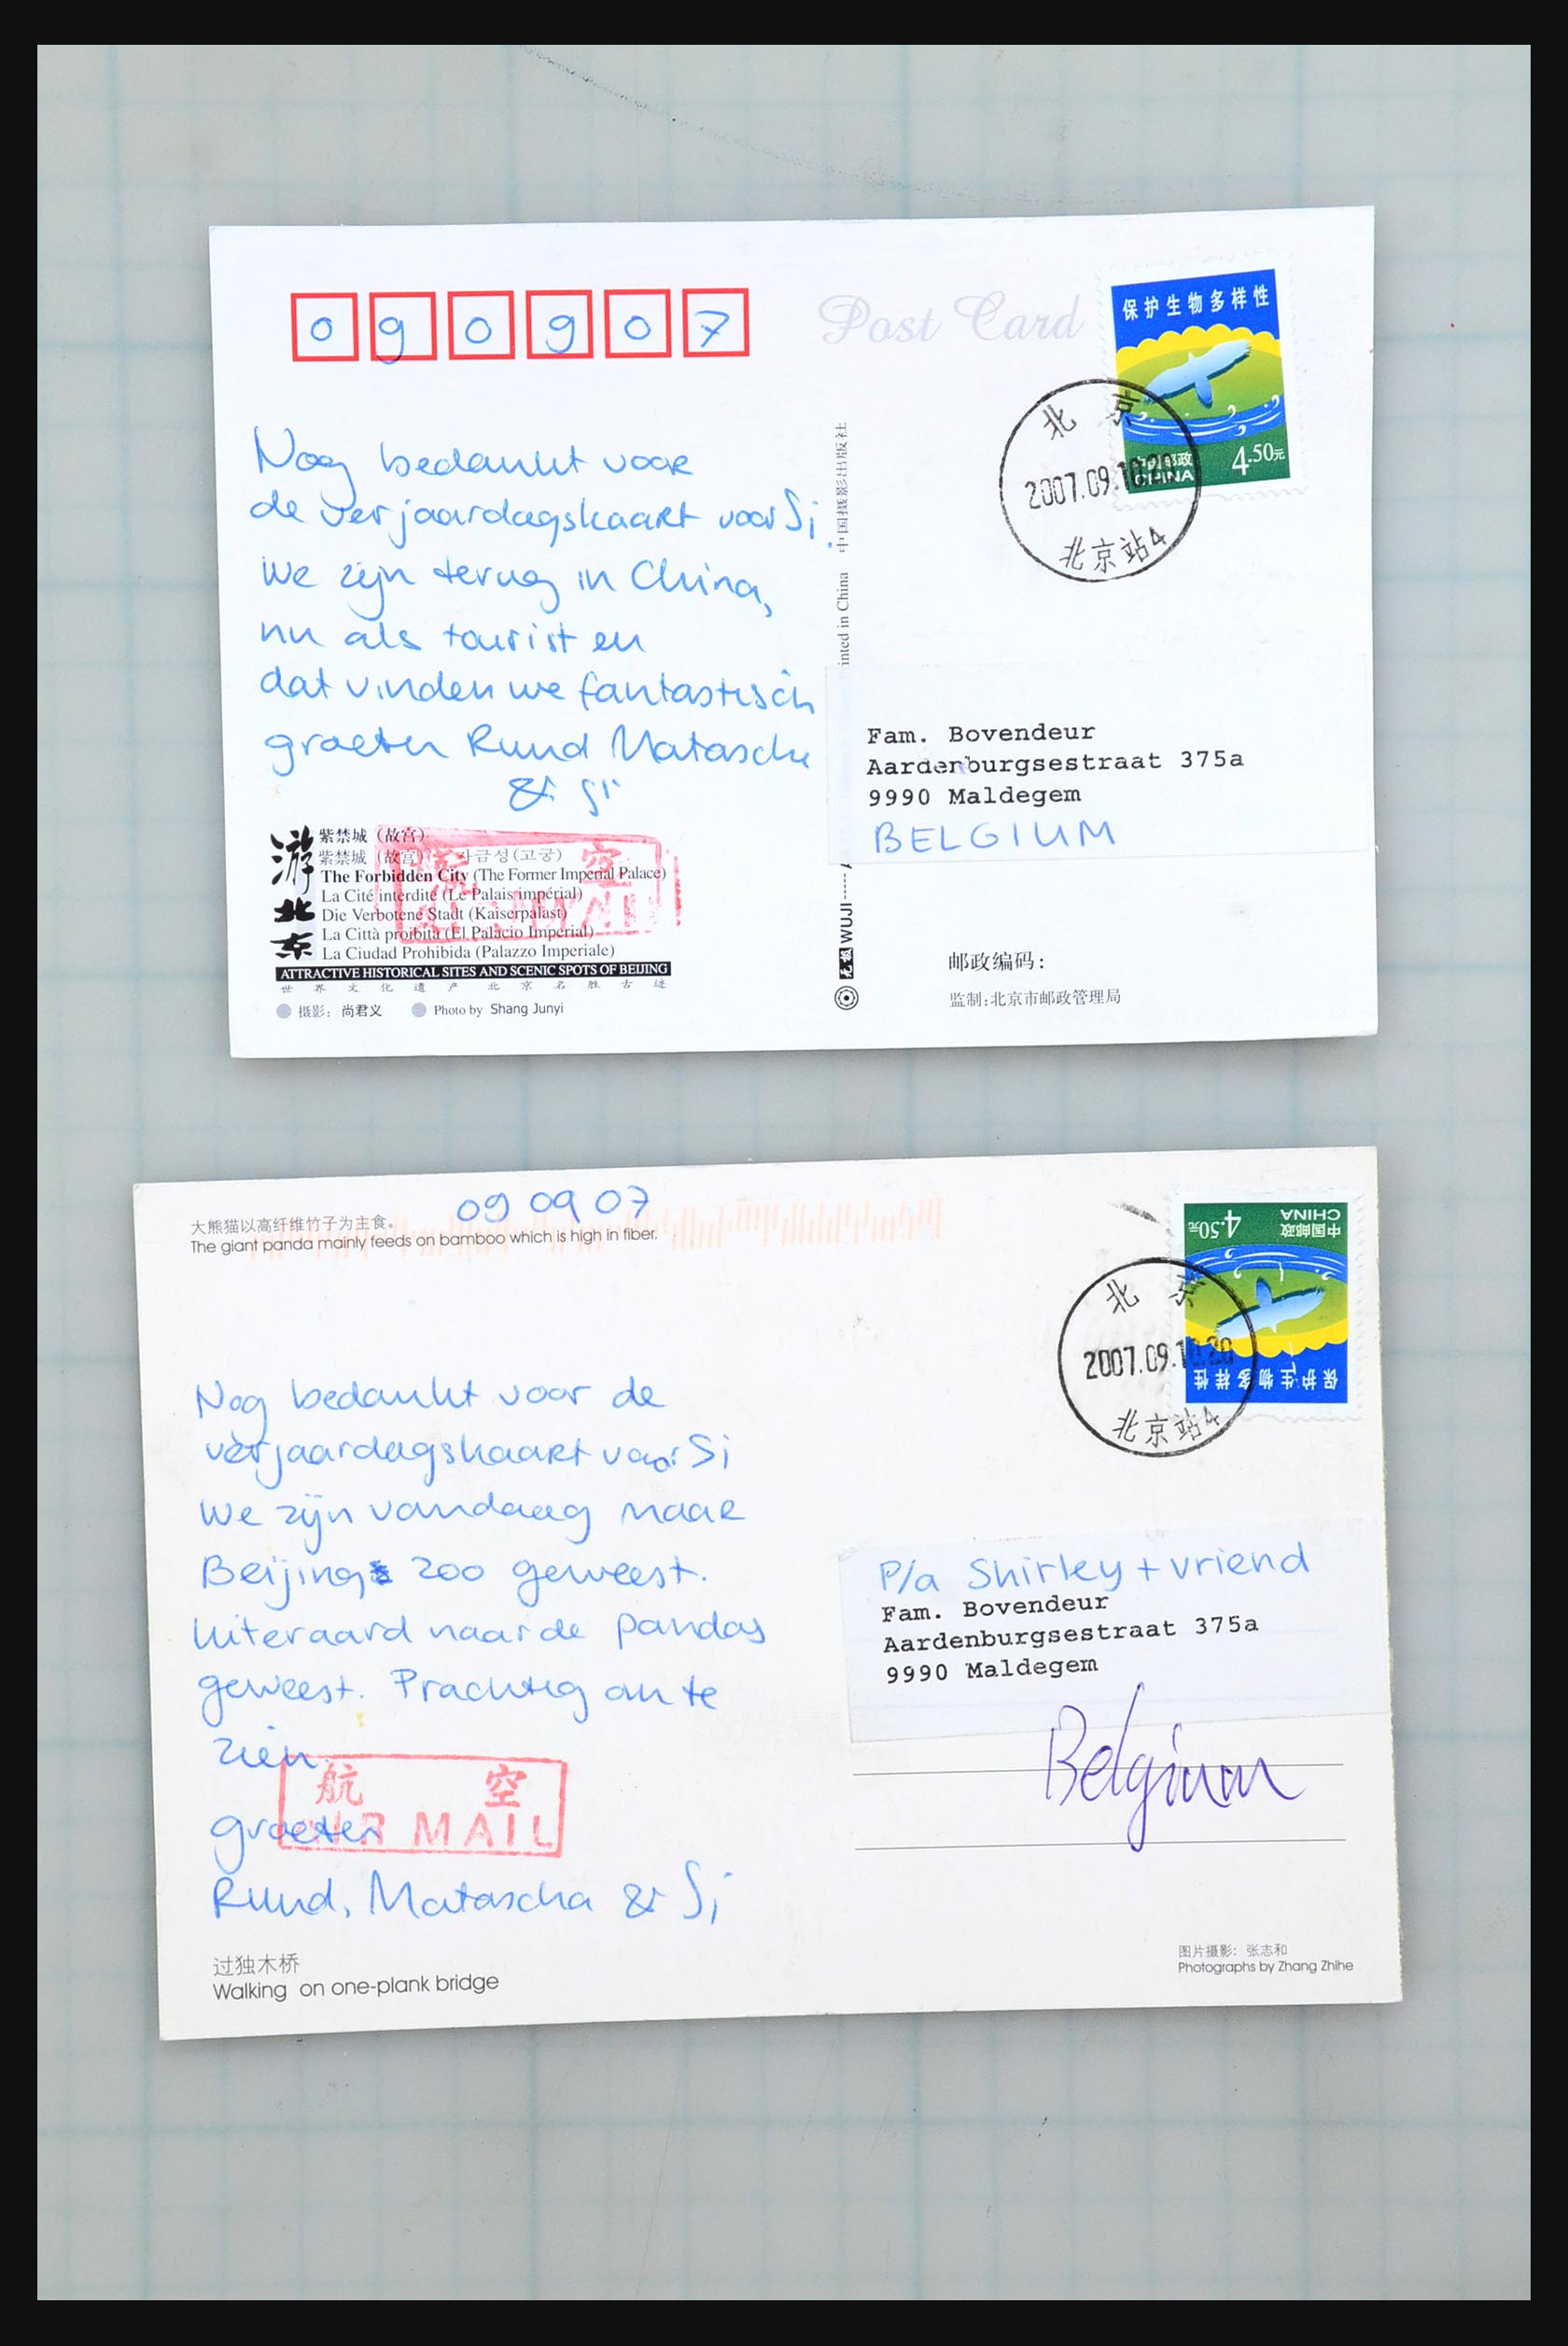 0 9 0 9 0 7
Post Card
保护生物多样性
中国邮政
CHINA
4.50元
北京
2007.09.
北京站4
Nog bedankt voor
de verjaardagskaart voor Si.
We zijn terug in China,
nu als tourist en
dat vinden we fantastisch
groeten Ruud Natascha
& Si
中国摄影出版社
inted in China
WUJI
Fam. Bovendeur
Aardenburgsestraat 375a
9990 Maldegem
BELGIUM
游北京
紫禁城（故宫）
紫禁城（故宫） 자금성(고궁)
The Forbidden City (The Former Imperial Palace)
La Cité interdite (Le Palais impérial)
Die Verbotene Stadt (Kaiserpalast)
La Città proibita (El Palacio Imperial)
La Ciudad Prohibida (Palazzo Imperiale)
航空
AIR MAIL
ATTRACTIVE HISTORICAL SITES AND SCENIC SPOTS OF BEIJING
世界文化遗产北京名胜古迹
摄影：尚君义 Photo by Shang Junyi
邮政编码：
监制:北京市邮政管理局
09 09 07
大熊猫以高纤维竹子为主食。
The giant panda mainly feeds on bamboo which is high in fiber.
中国邮政
CHINA
4.50元
保护生物多样性
北京
2007.09.
北京站4
Nog bedankt voor de
verjaardagskaart voor Si
We zijn vandaag naar
Beijing zoo geweest.
Uiteraard naar de pandas
geweest. Prachtig om te
zien.
groeten
Ruud, Natascha & Si
航空
AIR MAIL
P/a Shirley + vriend
Fam. Bovendeur
Aardenburgsestraat 375a
9990 Maldegem
Belgium
过独木桥
Walking on one-plank bridge
图片摄影：张志和
Photographs by Zhang Zhihe